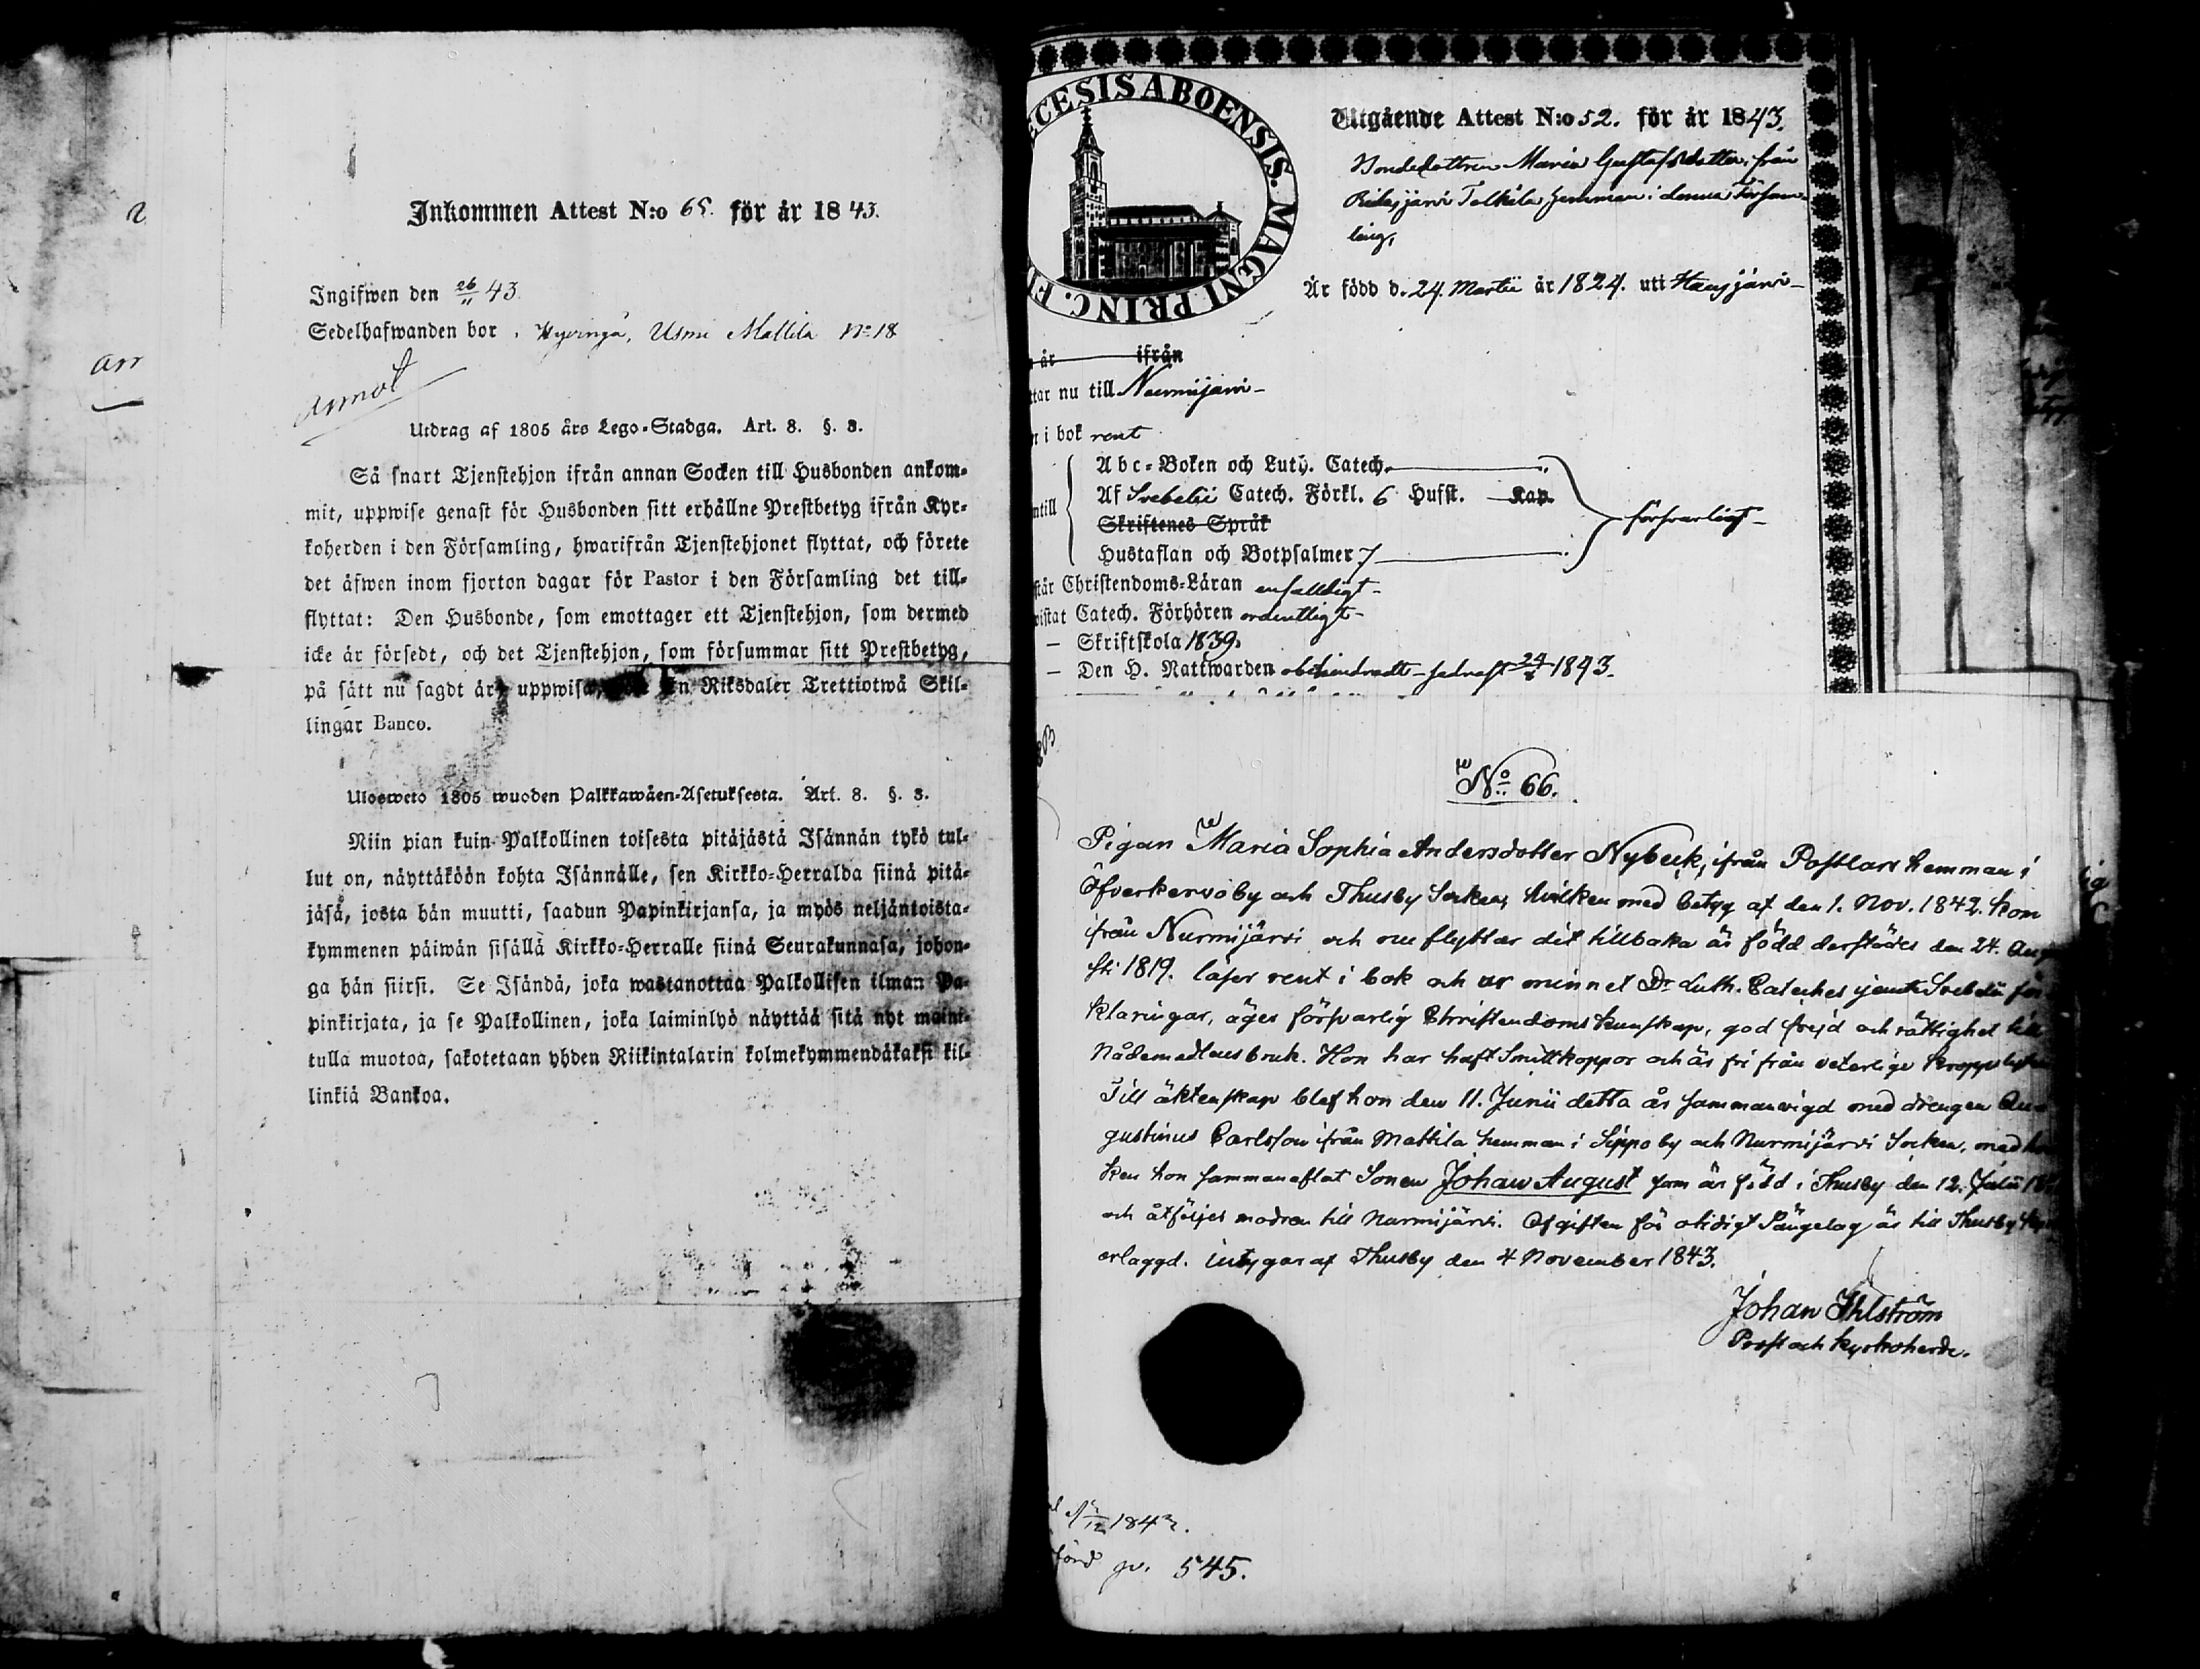 Inkommen Attest N:o 65. för år 1843.
Ingifwen den 26/11 43.
Sedelhafwanden bor i Hyvingä, Usmi Mattila No 18
arr
annot
Utdrag af 1805 års Lego-Stadga. Art. 8. §. 3.
Så snart Tjenstehjon ifrån annan Socken till Husbonden ankom-
mit, uppwise genast för Husbonden sitt erhållne Prestbetyg ifrån Kyr-
koherden i den Församling, hwarifrån Tjenstehjonet flyttat, och förete
det äfwen inom fjorton dagar för Pastor i den Församling det till-
flyttat: Den Husbonde, som emottager ett Tjenstehjon, som dermed
icke är försedt, och det Tjenstehjon, som försummar sitt Prestbetyg,
på sätt nu sagdt är, uppwisa, En Riksdaler Trettiotwå Skil-
lingar Banco.
Ulosweto 1805 wuoden Palkkawäen-Asetuksesta. Art. 8. §. 3.
Niin pian kuin Palkollinen toisesta pitäjästä Isännän tykö tul-
lut on, näyttäköön kohta Isännälle, sen Kirkko-Herralda siinä pitä-
jäsä, josta hän muutti, saadun Papinkirjansa, ja myös neljäntoista-
kymmenen päiwän sisällä Kirkko-Herralle siinä Seurakunnasa, johon-
ga hän siirsi. Se Isändä, joka wastanottaa Palkollisen ilman Pa-
pinkirjata, ja se Palkollinen, joka laiminlyö näyttää sitä nyt maini-
tulla muotoa, sakotetaan yhden Riikintalarin kolmekymmendäkaksi kil-
linkiä Bankoa.
CESIS ABOENSIS. MAGNI PRINC. F
Utgående Attest N:o 52. för år 1843.
Bondedottren Maria Gustafsdotter, från
Ridasjärvi Tolkila hemman i denna Försam-
ling,
Är född d. 24. Martii år 1824. uti Hausjärvi
år ifrån
tar nu till Nurmijärvi
i bok rent
ntill
Abc-Boken och Luth. Catech.
Af Svebelii Catech. Förkl. 6 Hufst. Kap.
Skriftenes Språk
Hustaflan och Botpsalmer 7
försvarligt
står Christendoms-Läran enfalldigt
vistat Catech. Förhören ordentligt
— Skriftskola 1839.
— Den H. Nattwarden obehindradt sednast 1843.
No 66.
Pigan Maria Sophia Andersdotter Nybeck, ifrån Postlars hemman i
Öfverkervo by och Thusby Socken, hvilken med betyg af den 1. Nov. 1842. kom
ifrån Nurmijärvi och nu flyttar dit tillbaka är född derstädes den 24. Augu
sti 1819. läser rent i bok och ur minnet Dr Luth. Cateches jemte Svebelii för
klaringar, äger försvarlig Christendoms kunskap, god frejd och rättighet till
Nådemedlens bruk. Hon har haft Smittkoppor och är fri från veterlige kroppslyten
Till äktenskap blef hon den 11. Junii detta år sammanvigd med drengen Au-
gustinus Carlsson ifrån Mattila hemman i Sippo by och Nurmijärvi Socken, med
ken hon sammanaflat Sonen Johan August som är född i Thusby den 12. Julii 18
och åtföljer modren till Nurmijärvi. Afgiften för otidigt Sängelag är till Thusby
erlaggd. intygar af Thusby den 4 November 1843.
Johan Ihlström
Prost och Kyrkoherde.
12 1843.
förd p. 545.